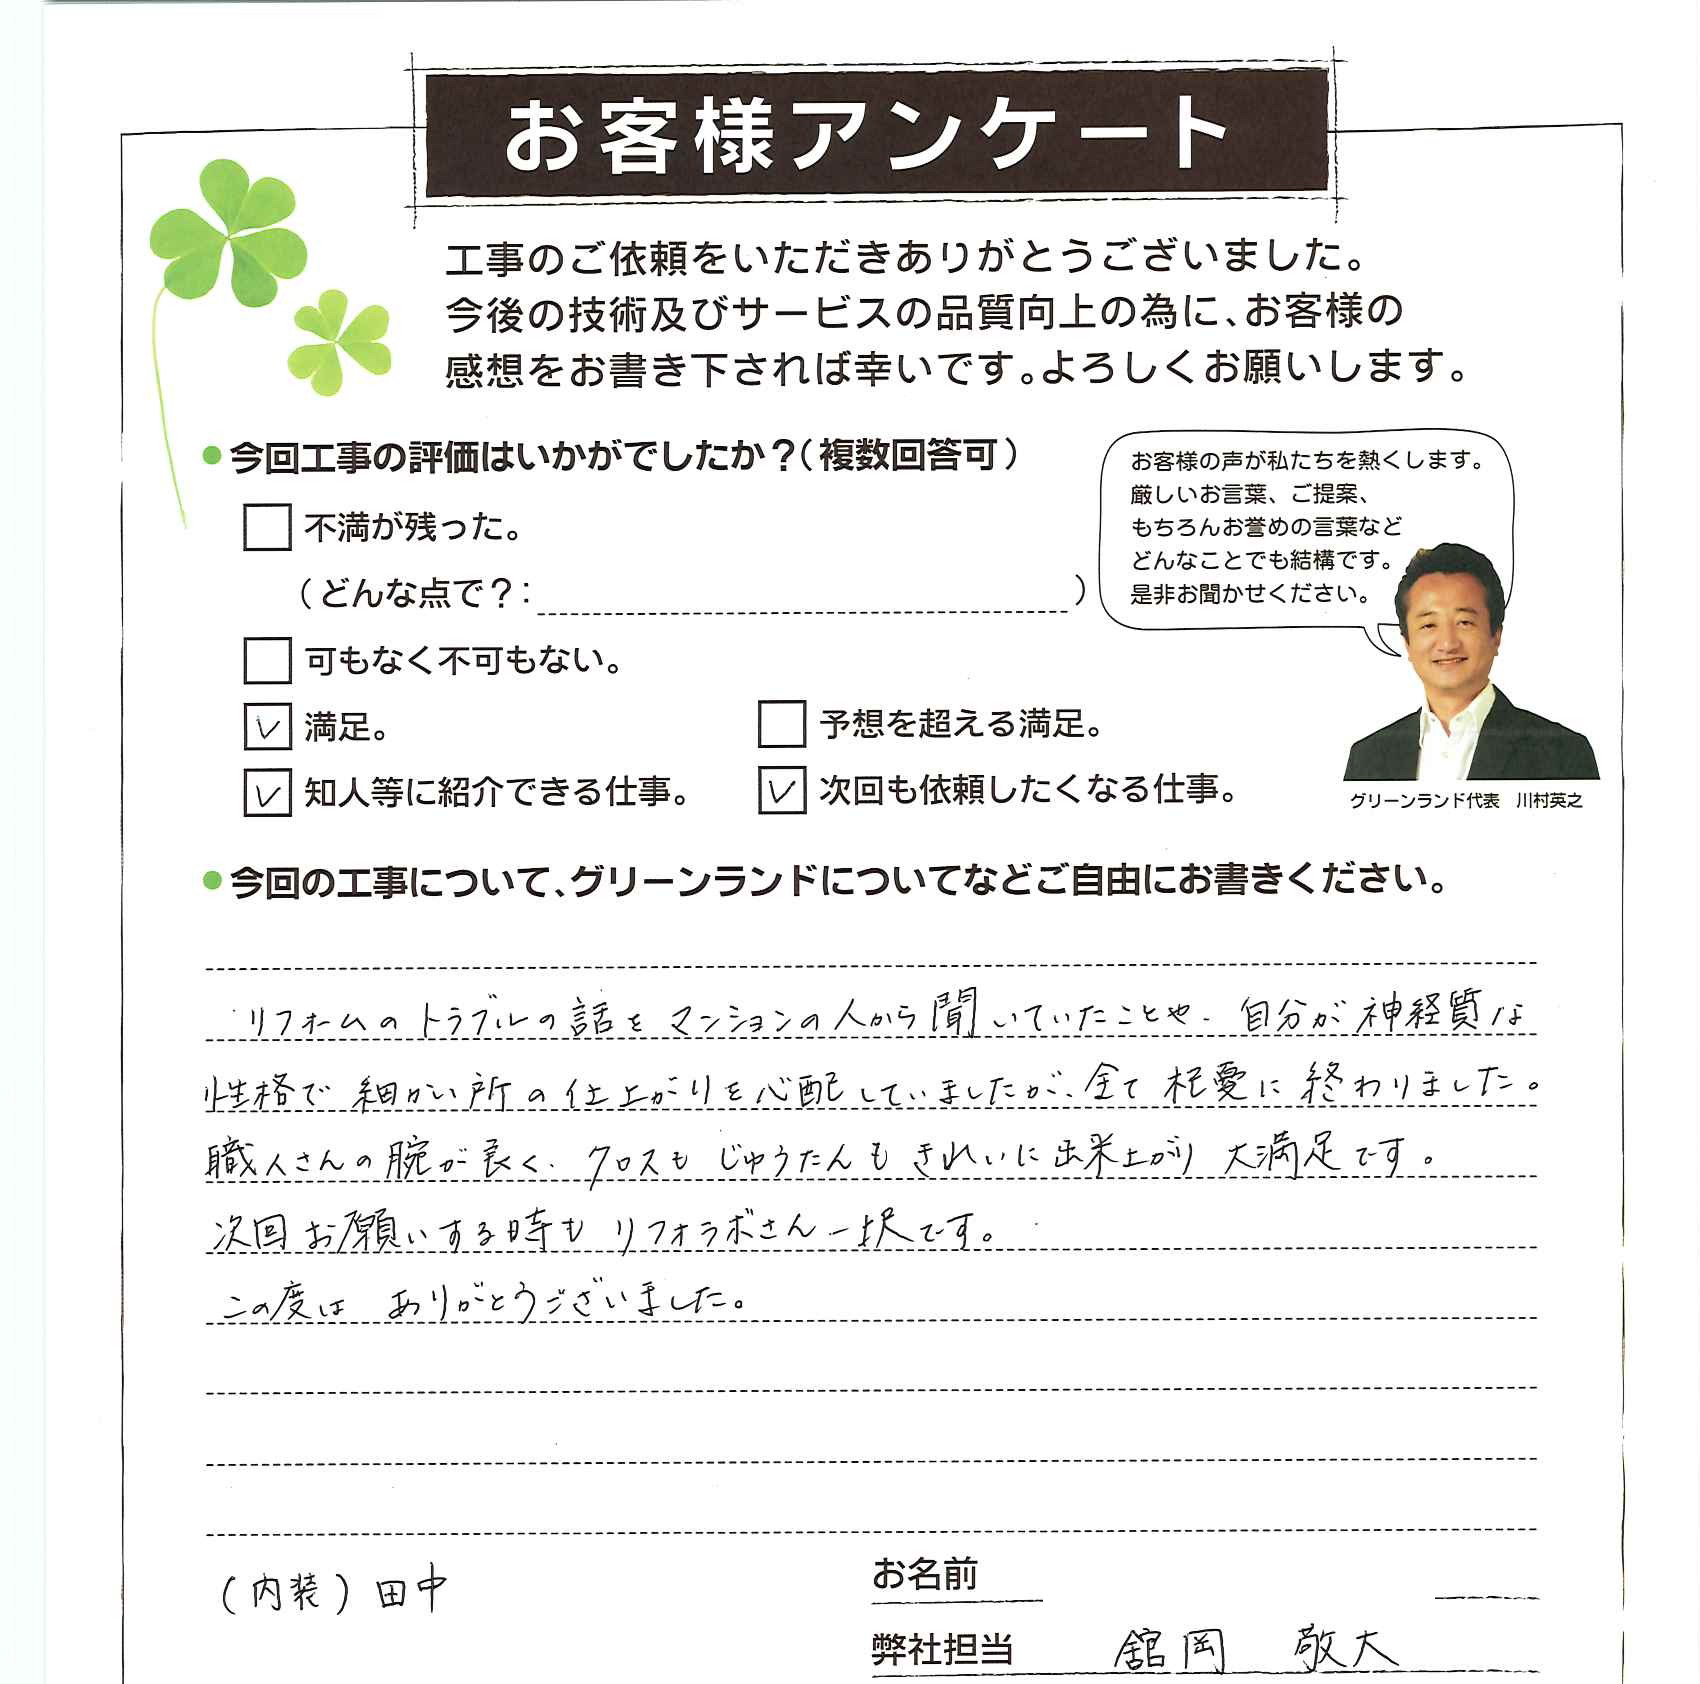 お客様アンケート
工事のご依頼をいただきありがとうございました。
今後の技術及びサービスの品質向上の為に、お客様の
感想をお書き下されば幸いです。よろしくお願いします。
●今回工事の評価はいかがでしたか？（複数回答可）
お客様の声が私たちを熱くします。
厳しいお言葉、ご提案、
もちろんお誉めの言葉など
どんなことでも結構です。
是非お聞かせください。
不満が残った。
（どんな点で？：　）
可もなく不可もない。
満足。
予想を超える満足。
知人等に紹介できる仕事。
次回も依頼したくなる仕事。
グリーンランド代表　川村英之
●今回の工事について、グリーンランドについてなどご自由にお書きください。
リフォームのトラブルの話をマンションの人から聞いていたことや、自分が神経質な
性格で細かい所の仕上がりを心配していましたが、全て杞憂に終わりました。
職人さんの腕が良く、クロスもじゅうたんもきれいに出来上がり大満足です。
次回お願いする時もリフォラボさん一択です。
この度は　ありがとうございました。
（内装）田中
お名前
弊社担当　舘岡　敬大